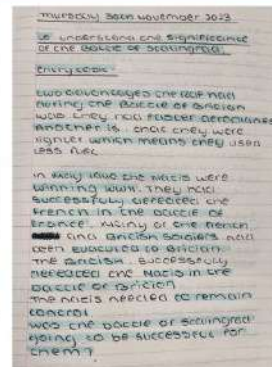 Thursday 30th November 2023
to understand the significance
of the Battle of Stalingrad.
entry task:
two advantages the RAF had
during the Battle of Britain
was they had faster aeroplanes
Another is that they were
lighter which means they used
less fuel
In 1940 the Nazis were
winning WWII. They had
successfully defeated the
French in the Battle of
France. Many of the French
and British soldiers had
been evacuated to Britain
The British successfully
defeated the Nazis in the
Battle of Britain
The Nazis needed to remain
control
was the Battle of Stalingrad
going to be successful for
them?